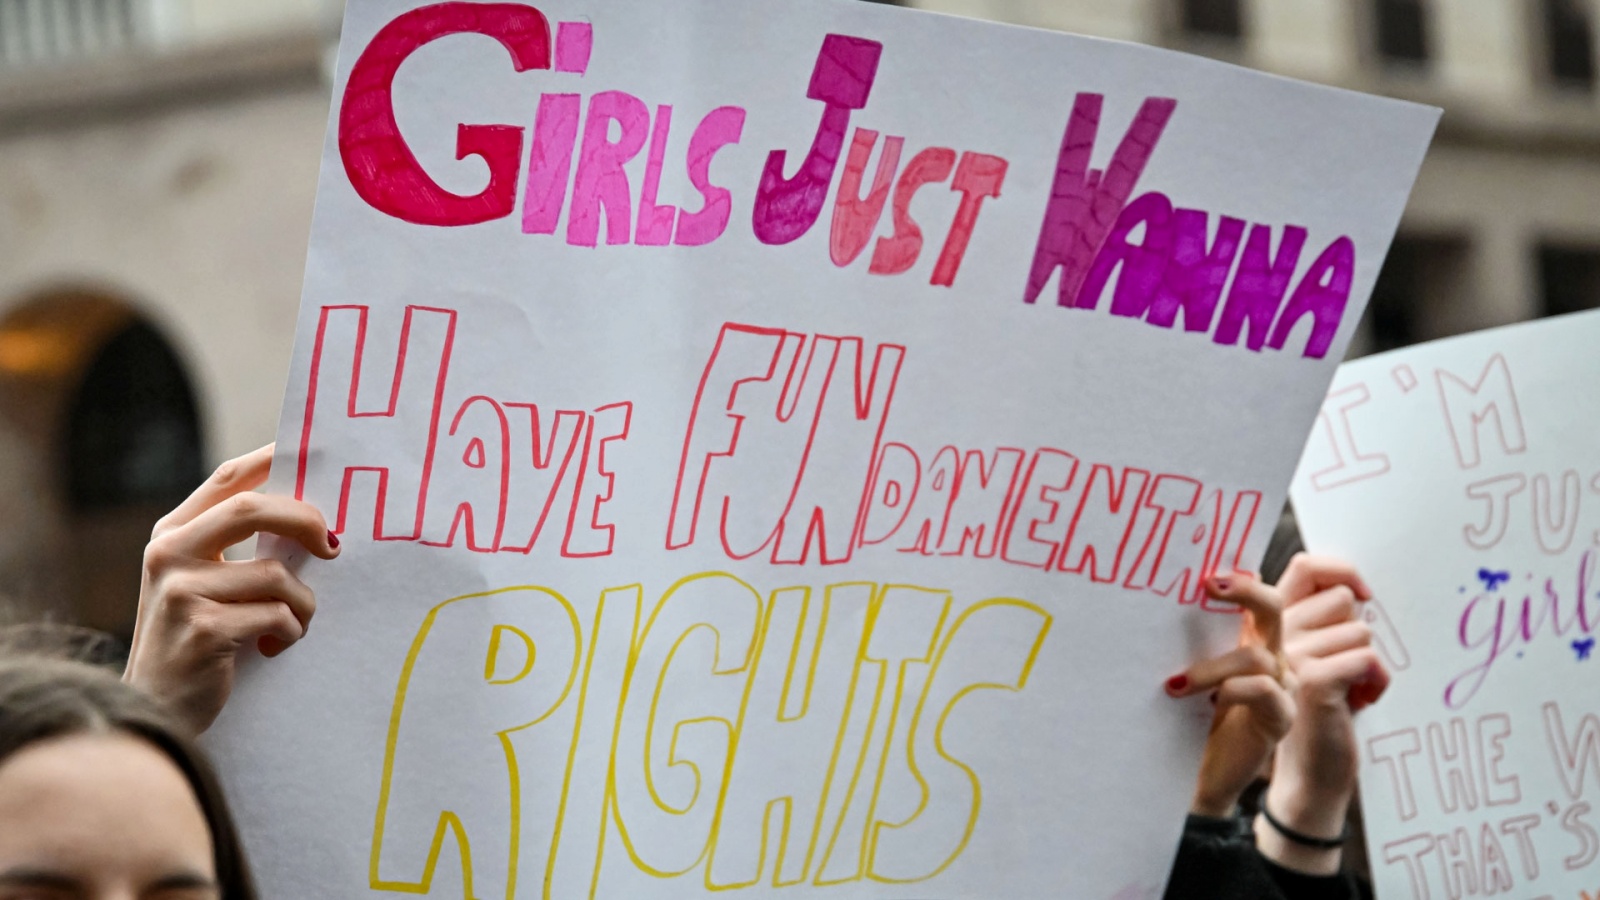 GIRLS JUST WANNA
HAVE FUNDAMENTAL
RIGHTS
I'M
A girl
THE
THAT'S